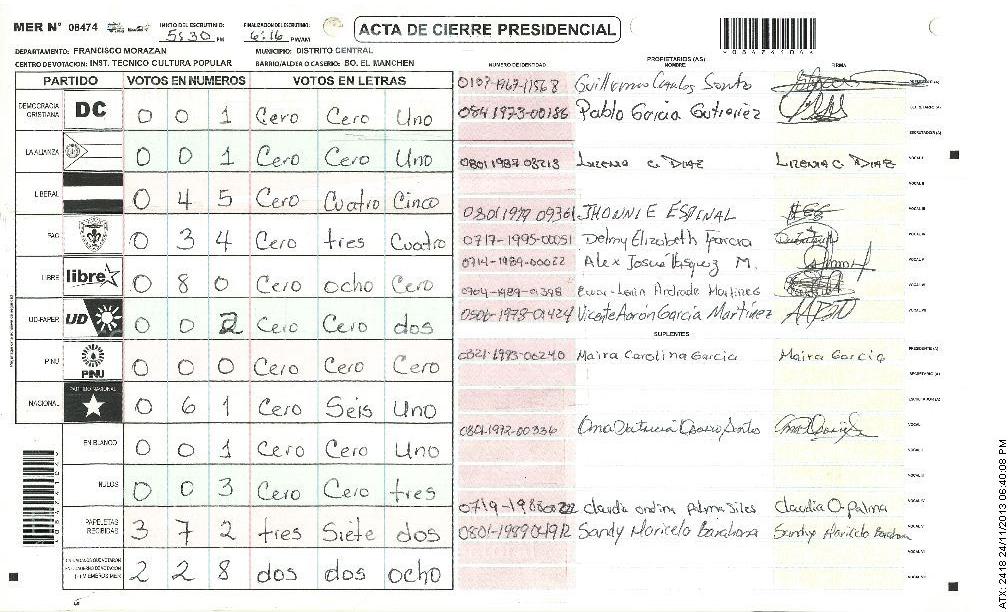 MER N° 08474 INICIO DEL ESCRUTINIO: 5:30 PM FINALIZACION DEL ESCRUTINIO: 6:16 PM/AM ACTA DE CIERRE PRESIDENCIAL
DEPARTAMENTO: FRANCISCO MORAZAN MUNICIPIO: DISTRITO CENTRAL
CENTRO DE VOTACION: INST. TECNICO CULTURA POPULAR BARRIO/ALDEA O CASERIO: BO. EL MANCHEN
PARTIDO VOTOS EN NUMEROS VOTOS EN LETRAS
DEMOCRACIA CRISTIANA DC 0 0 1 Cero Cero Uno
LA ALIANZA 0 0 1 Cero Cero Uno
LIBERAL 0 4 5 Cero Cuatro Cinco
FAO 0 3 4 Cero tres Cuatro
LIBRE libre 0 8 0 Cero ocho Cero
UD-FAPER UD 0 0 2 Cero Cero dos
PINU PINU 0 0 0 Cero Cero Cero
NACIONAL PARTIDO NACIONAL 0 6 1 Cero Seis Uno
EN BLANCO 0 0 1 Cero Cero Uno
NULOS 0 0 3 Cero Cero tres
PAPELETAS RECIBIDAS 3 7 2 tres Siete dos
2 2 8 dos dos ocho
PROPIETARIOS (AS)
NUMERO DE IDENTIDAD NOMBRE FIRMA
0107-1967-11568 Guillermo Carlos Santo
0841973-00186 Pablo Garcia Gutierrez
0801 1987 08213
0801 1979 09361 JHONNIE ESPINAL
0717-1995-00051 Delmy Elizabeth
0714-1989-00022 Alex Josué Vasquez M.
0704-1989-01398 Andrade Martinez
0506-1978-01424 Vicente Aarón García Martínez
SUPLENTES
0321-1993-00240 Maira Carolina Garcia Maira Garcia
0801-1972-00336
Claudia ondina Palma Siles Claudia O. Palma
0801-1989-01912 Sandy Maricelo Barahona Sandy Maricelo Barahona
ATX: 2418 24/11/2013 06:40:08 PM